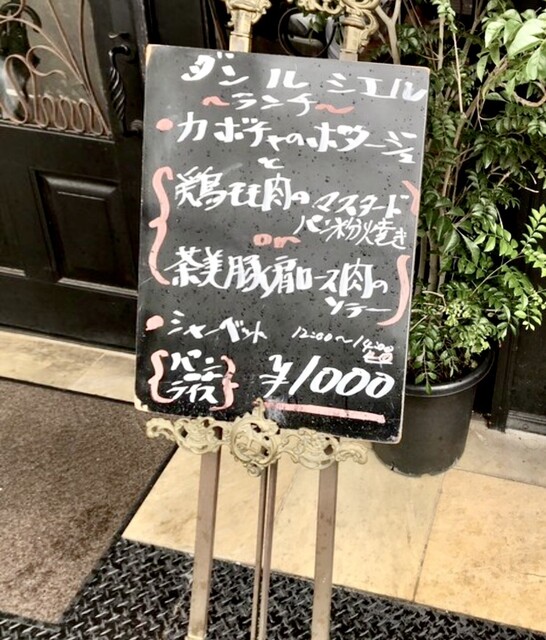 ダンルシエル
～ランチ～
カボチャのポタージュ
と
鶏モモ肉のマスタード
パン粉焼き
or
茶美豚肩ロース肉の
ソテー
シャーベット
12:00～14:00
パン
ライス
¥1000